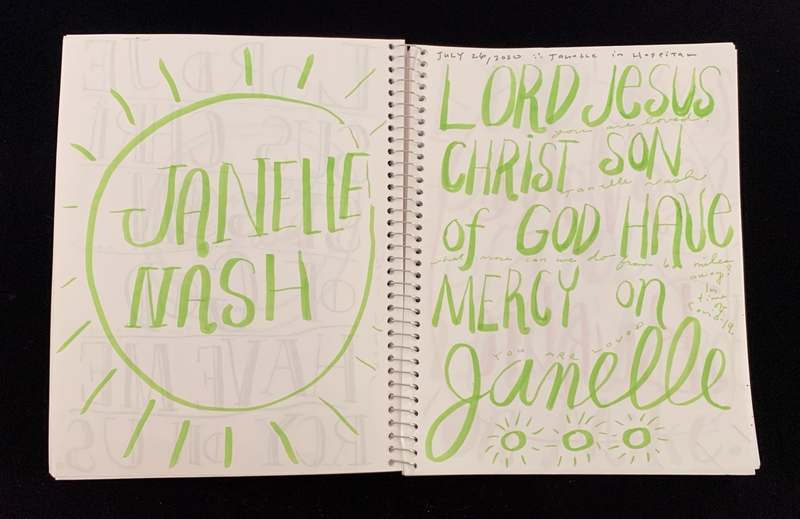 JANELLE
NASH
JULY 26, 2020 :: Janelle in Hospital
LORD JESUS
you are loved.
CHRIST SON
Janelle Nash
of GOD HAVE
what more can we do from 60 miles
away?
In
time
of
Covid-19.
MERCY on
YOU ARE LOVED
Janelle